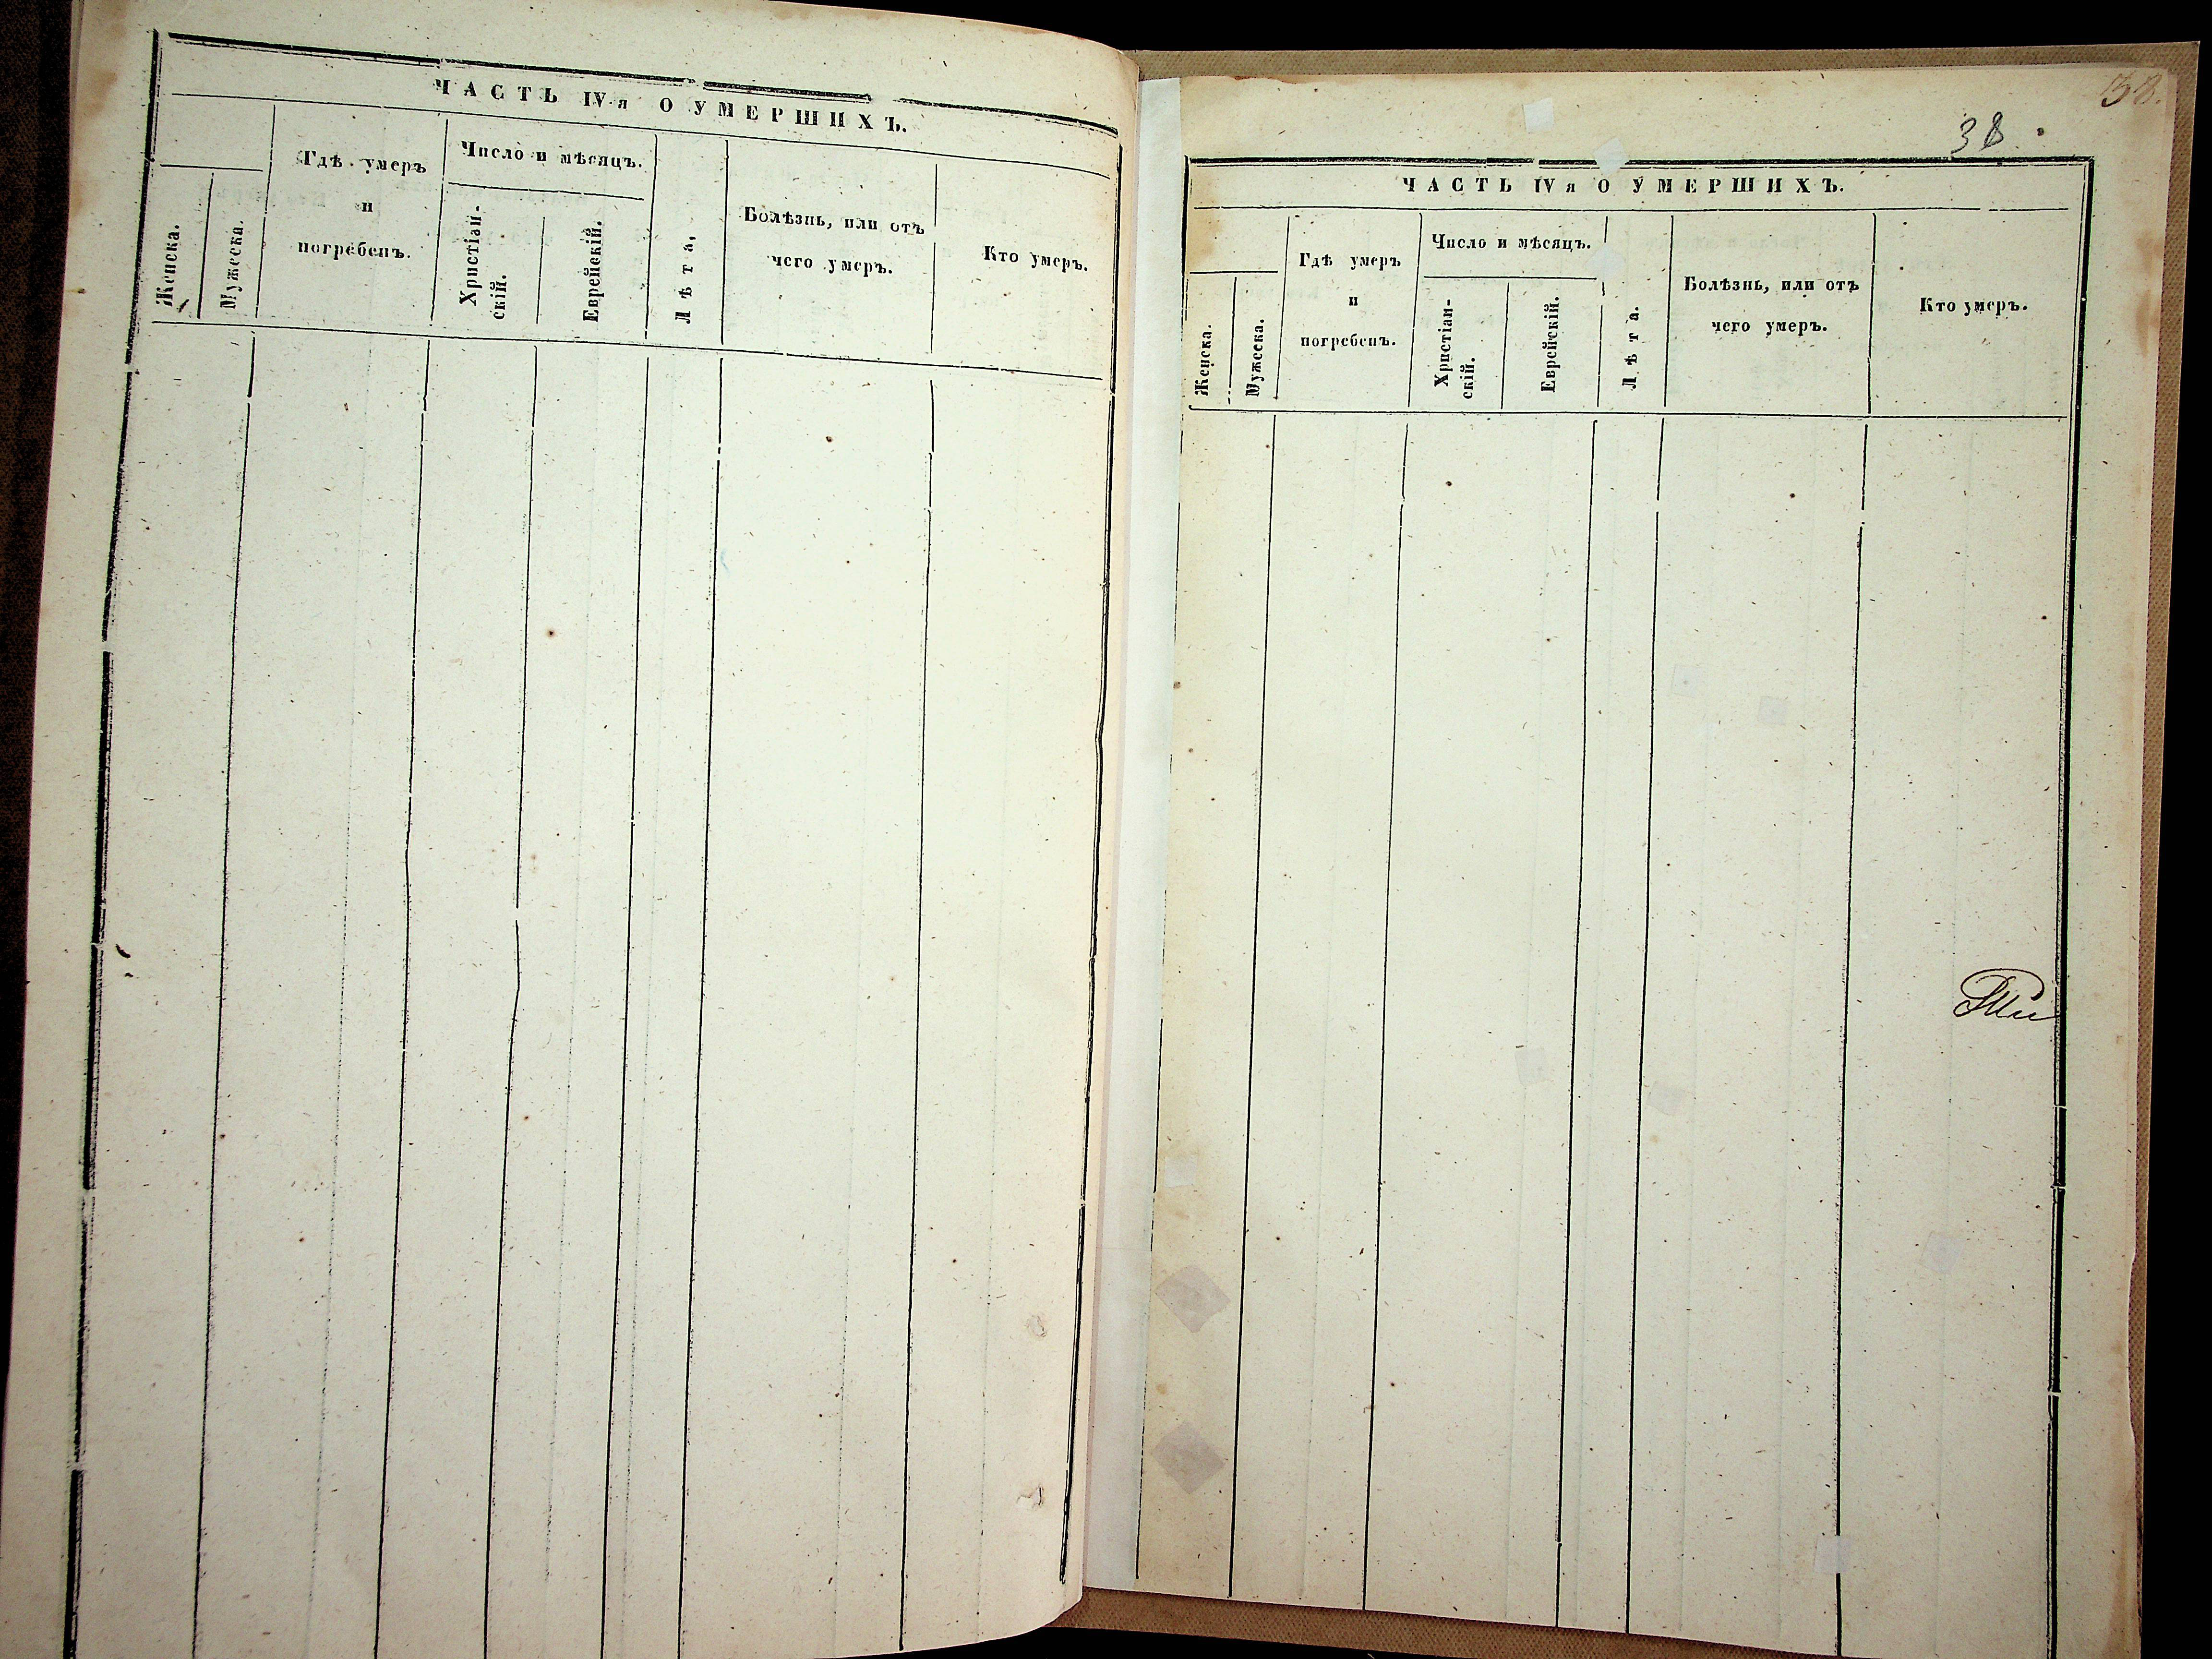 ЧАСТЬ IV-я О УМЕРШИХЪ.
Женска.
Мужеска.
Гдѣ умеръ
и
погребенъ.
Число и мѣсяцъ.
Христіан-
скій.
Еврейскій.
Лѣта,
Болѣзнь, или отъ
чего умеръ.
Кто умеръ.
38.
38.
ЧАСТЬ IV я О УМЕРШИХЪ.
Женска.
Мужеска.
Гдѣ умеръ
и
погребенъ.
Число и мѣсяцъ.
Христіан-
скій.
Еврейскій.
Лѣта.
Болѣзнь, или отъ
чего умеръ.
Кто умеръ.